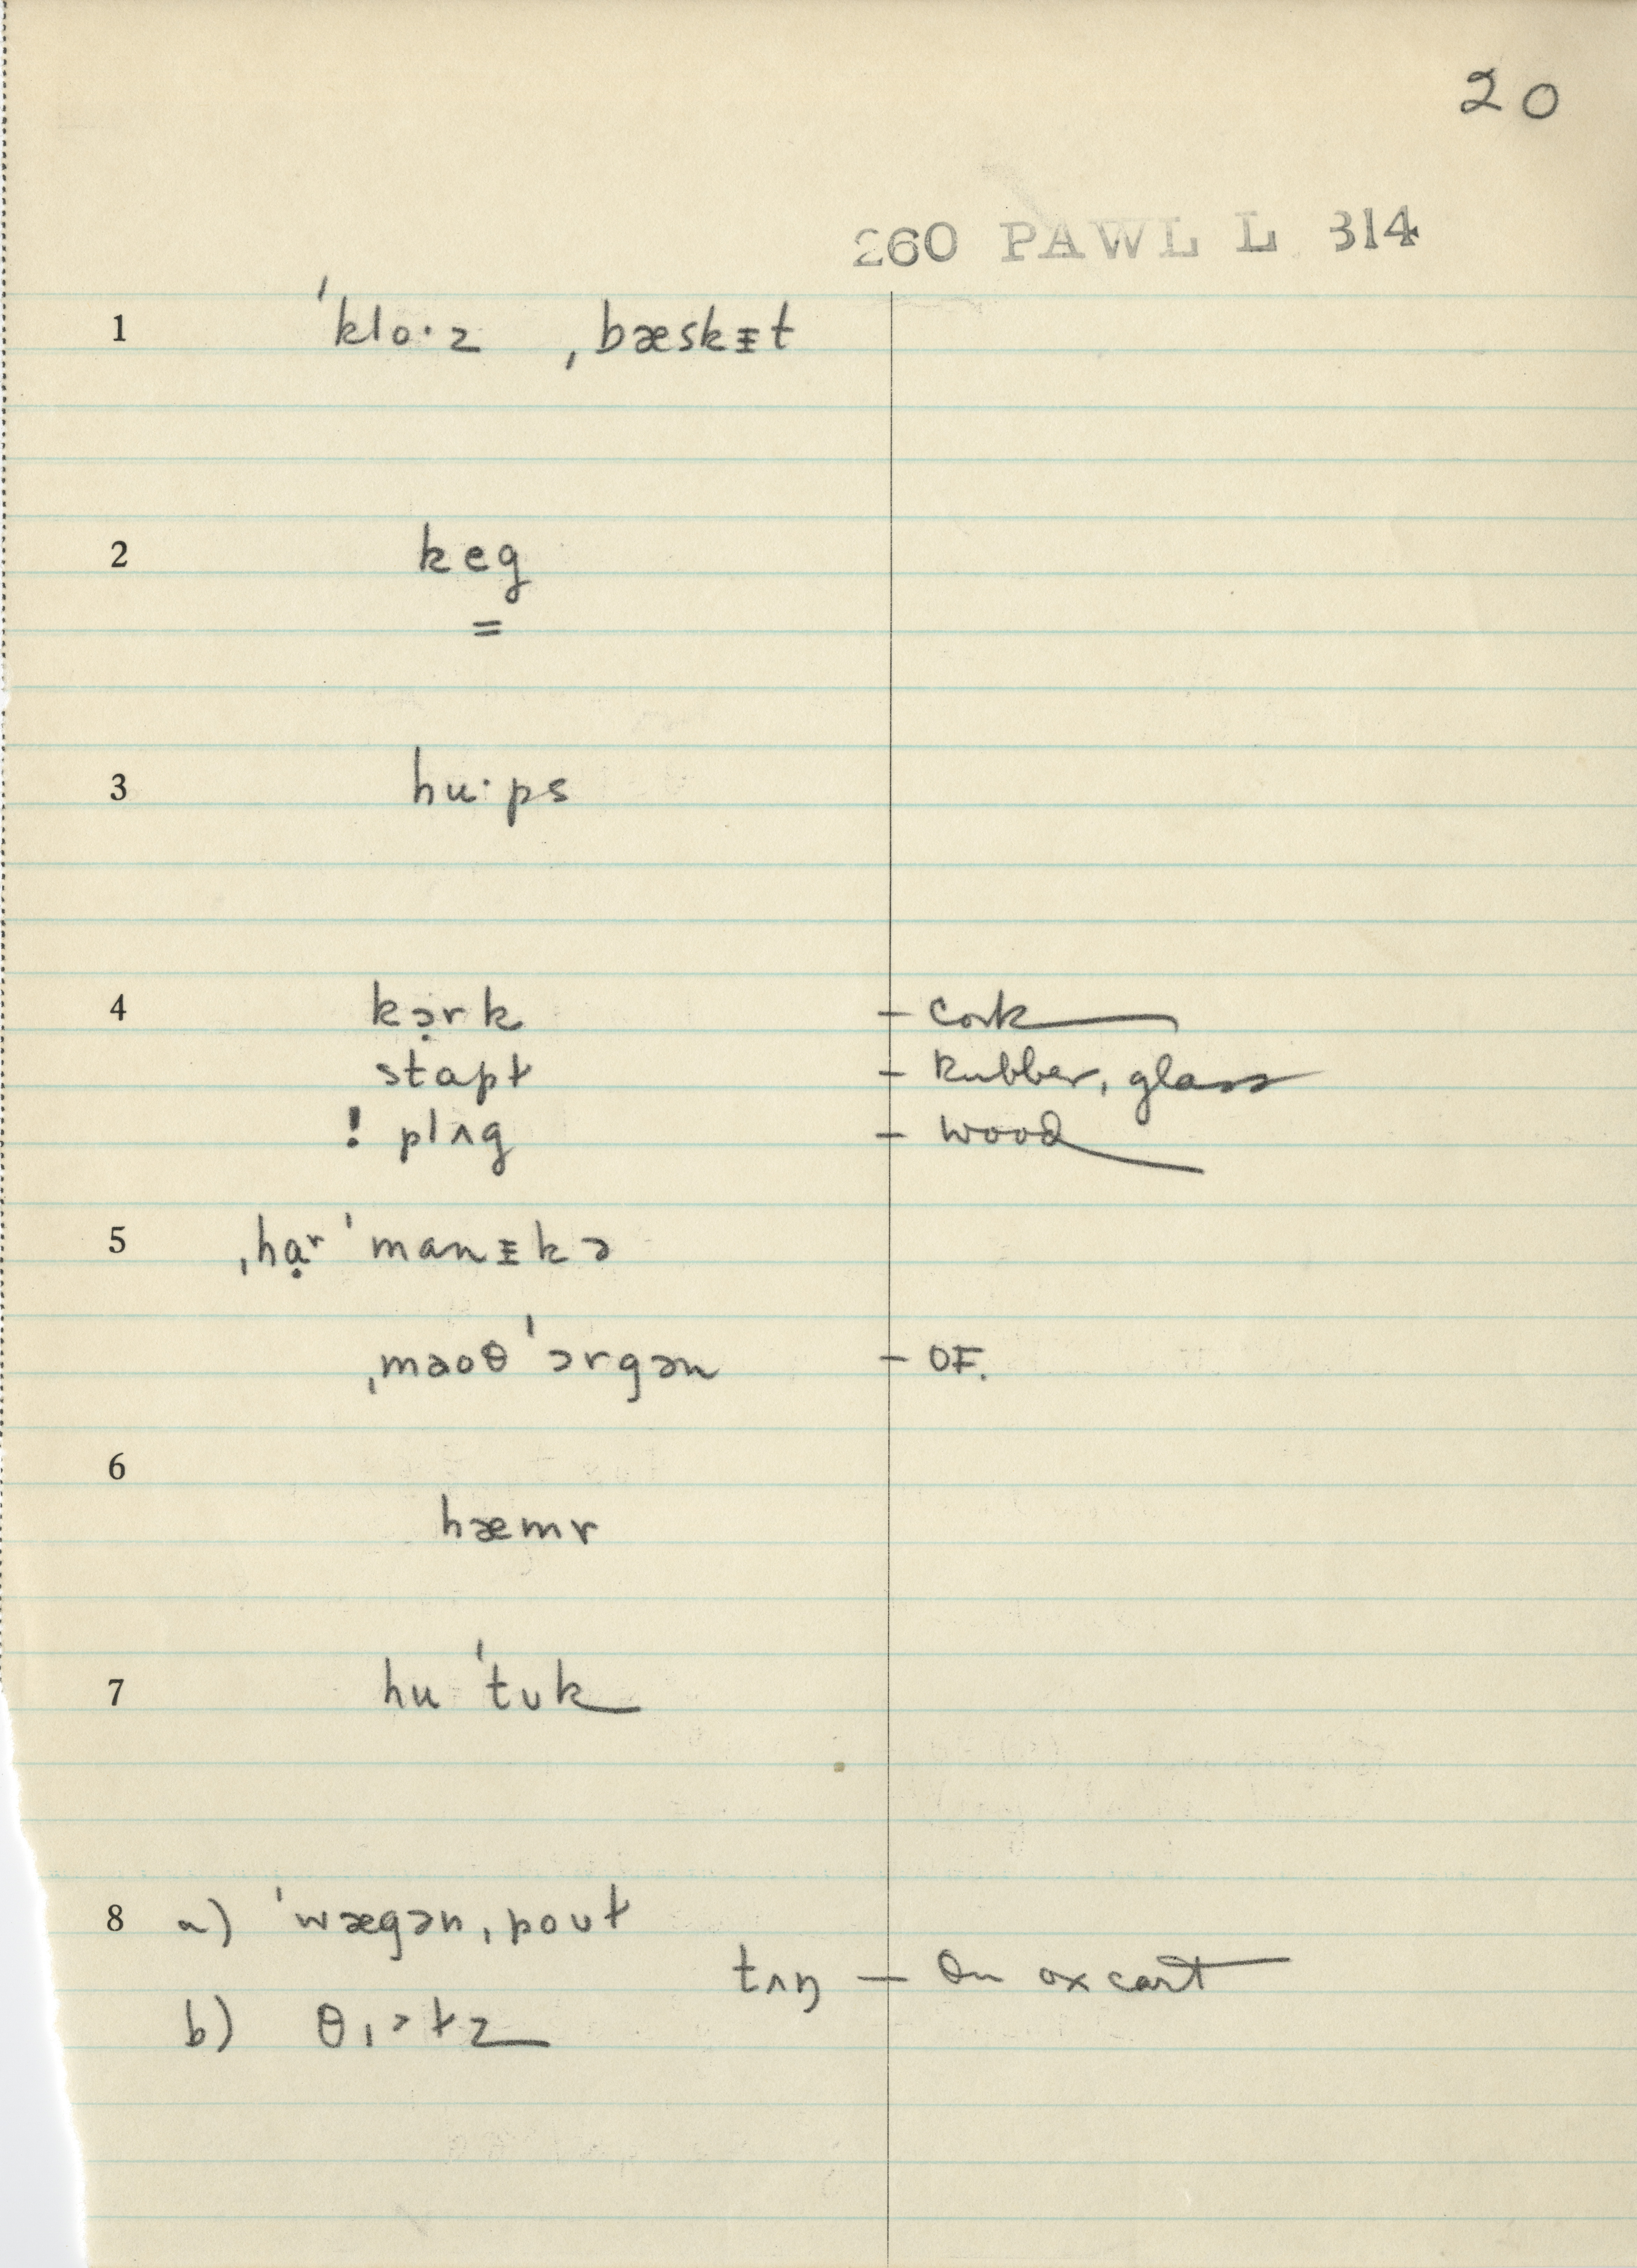 20
260 PAWL L 314
1 ˈklo·z ˌbæskᵻt
2 keg
=
3 hu·ps
4 kɔ̣rk – cork
stapɫ – Rubber, glass
! plʌg – wood
5 ˌhɑ̣ʳˈmanᵻkə
ˌmaoθˈɔrgən – OF.
6 hæmr
7 huˈtʊk
8 a) ˈwægənˌpoʊɫ
tʌŋ – On ox cart
b) θɪəɫz